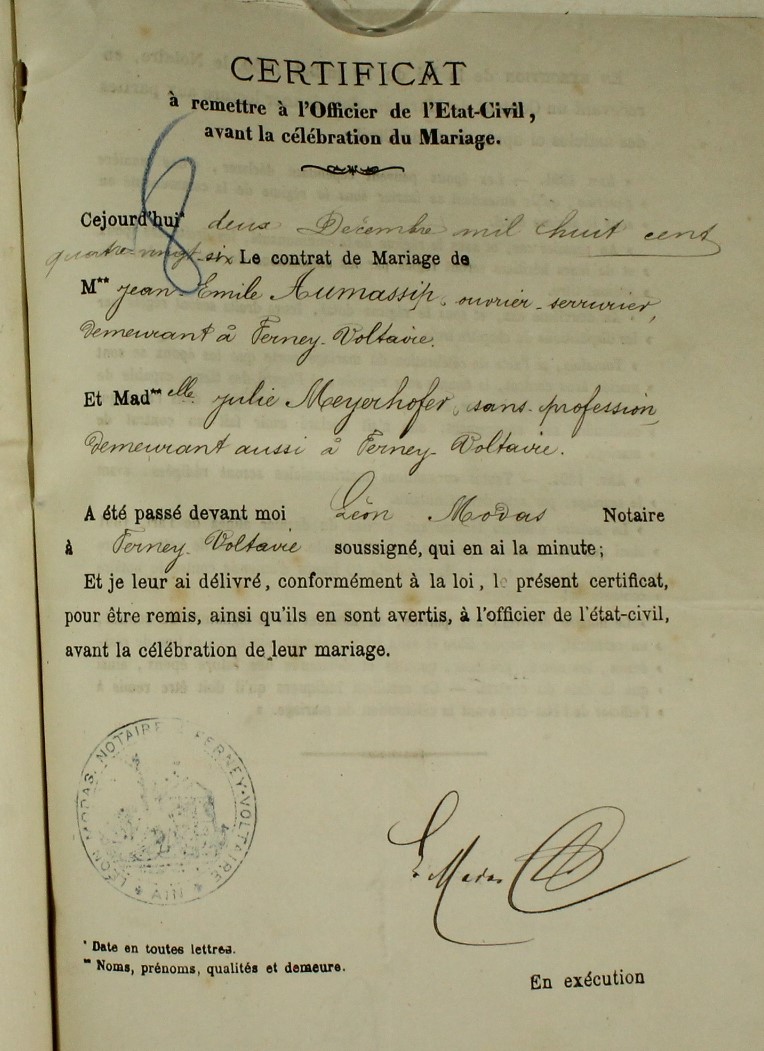 CERTIFICAT
à remettre à l'Officier de l'Etat-Civil,
avant la célébration du Mariage.
Cejourd'hui* deux Décembre mil huit cent
quatre-vingt-six Le contrat de Mariage de
M** Jean-Emile Aumassip, ouvrier-serrurier,
demeurant à Ferney-Voltaire.
Et Mad**elle Julie Meyerhofer, sans profession
demeurant aussi à Ferney-Voltaire.
A été passé devant moi Léon Modas Notaire
à Ferney-Voltaire soussigné, qui en ai la minute;
Et je leur ai délivré, conformément à la loi, le présent certificat,
pour être remis, ainsi qu'ils en sont avertis, à l'officier de l'état-civil,
avant la célébration de leur mariage.
LÉON MODAS, NOTAIRE À FERNEY-VOLTAIRE
AIN
L. Modas
* Date en toutes lettres.
** Noms, prénoms, qualités et demeure.
En exécution